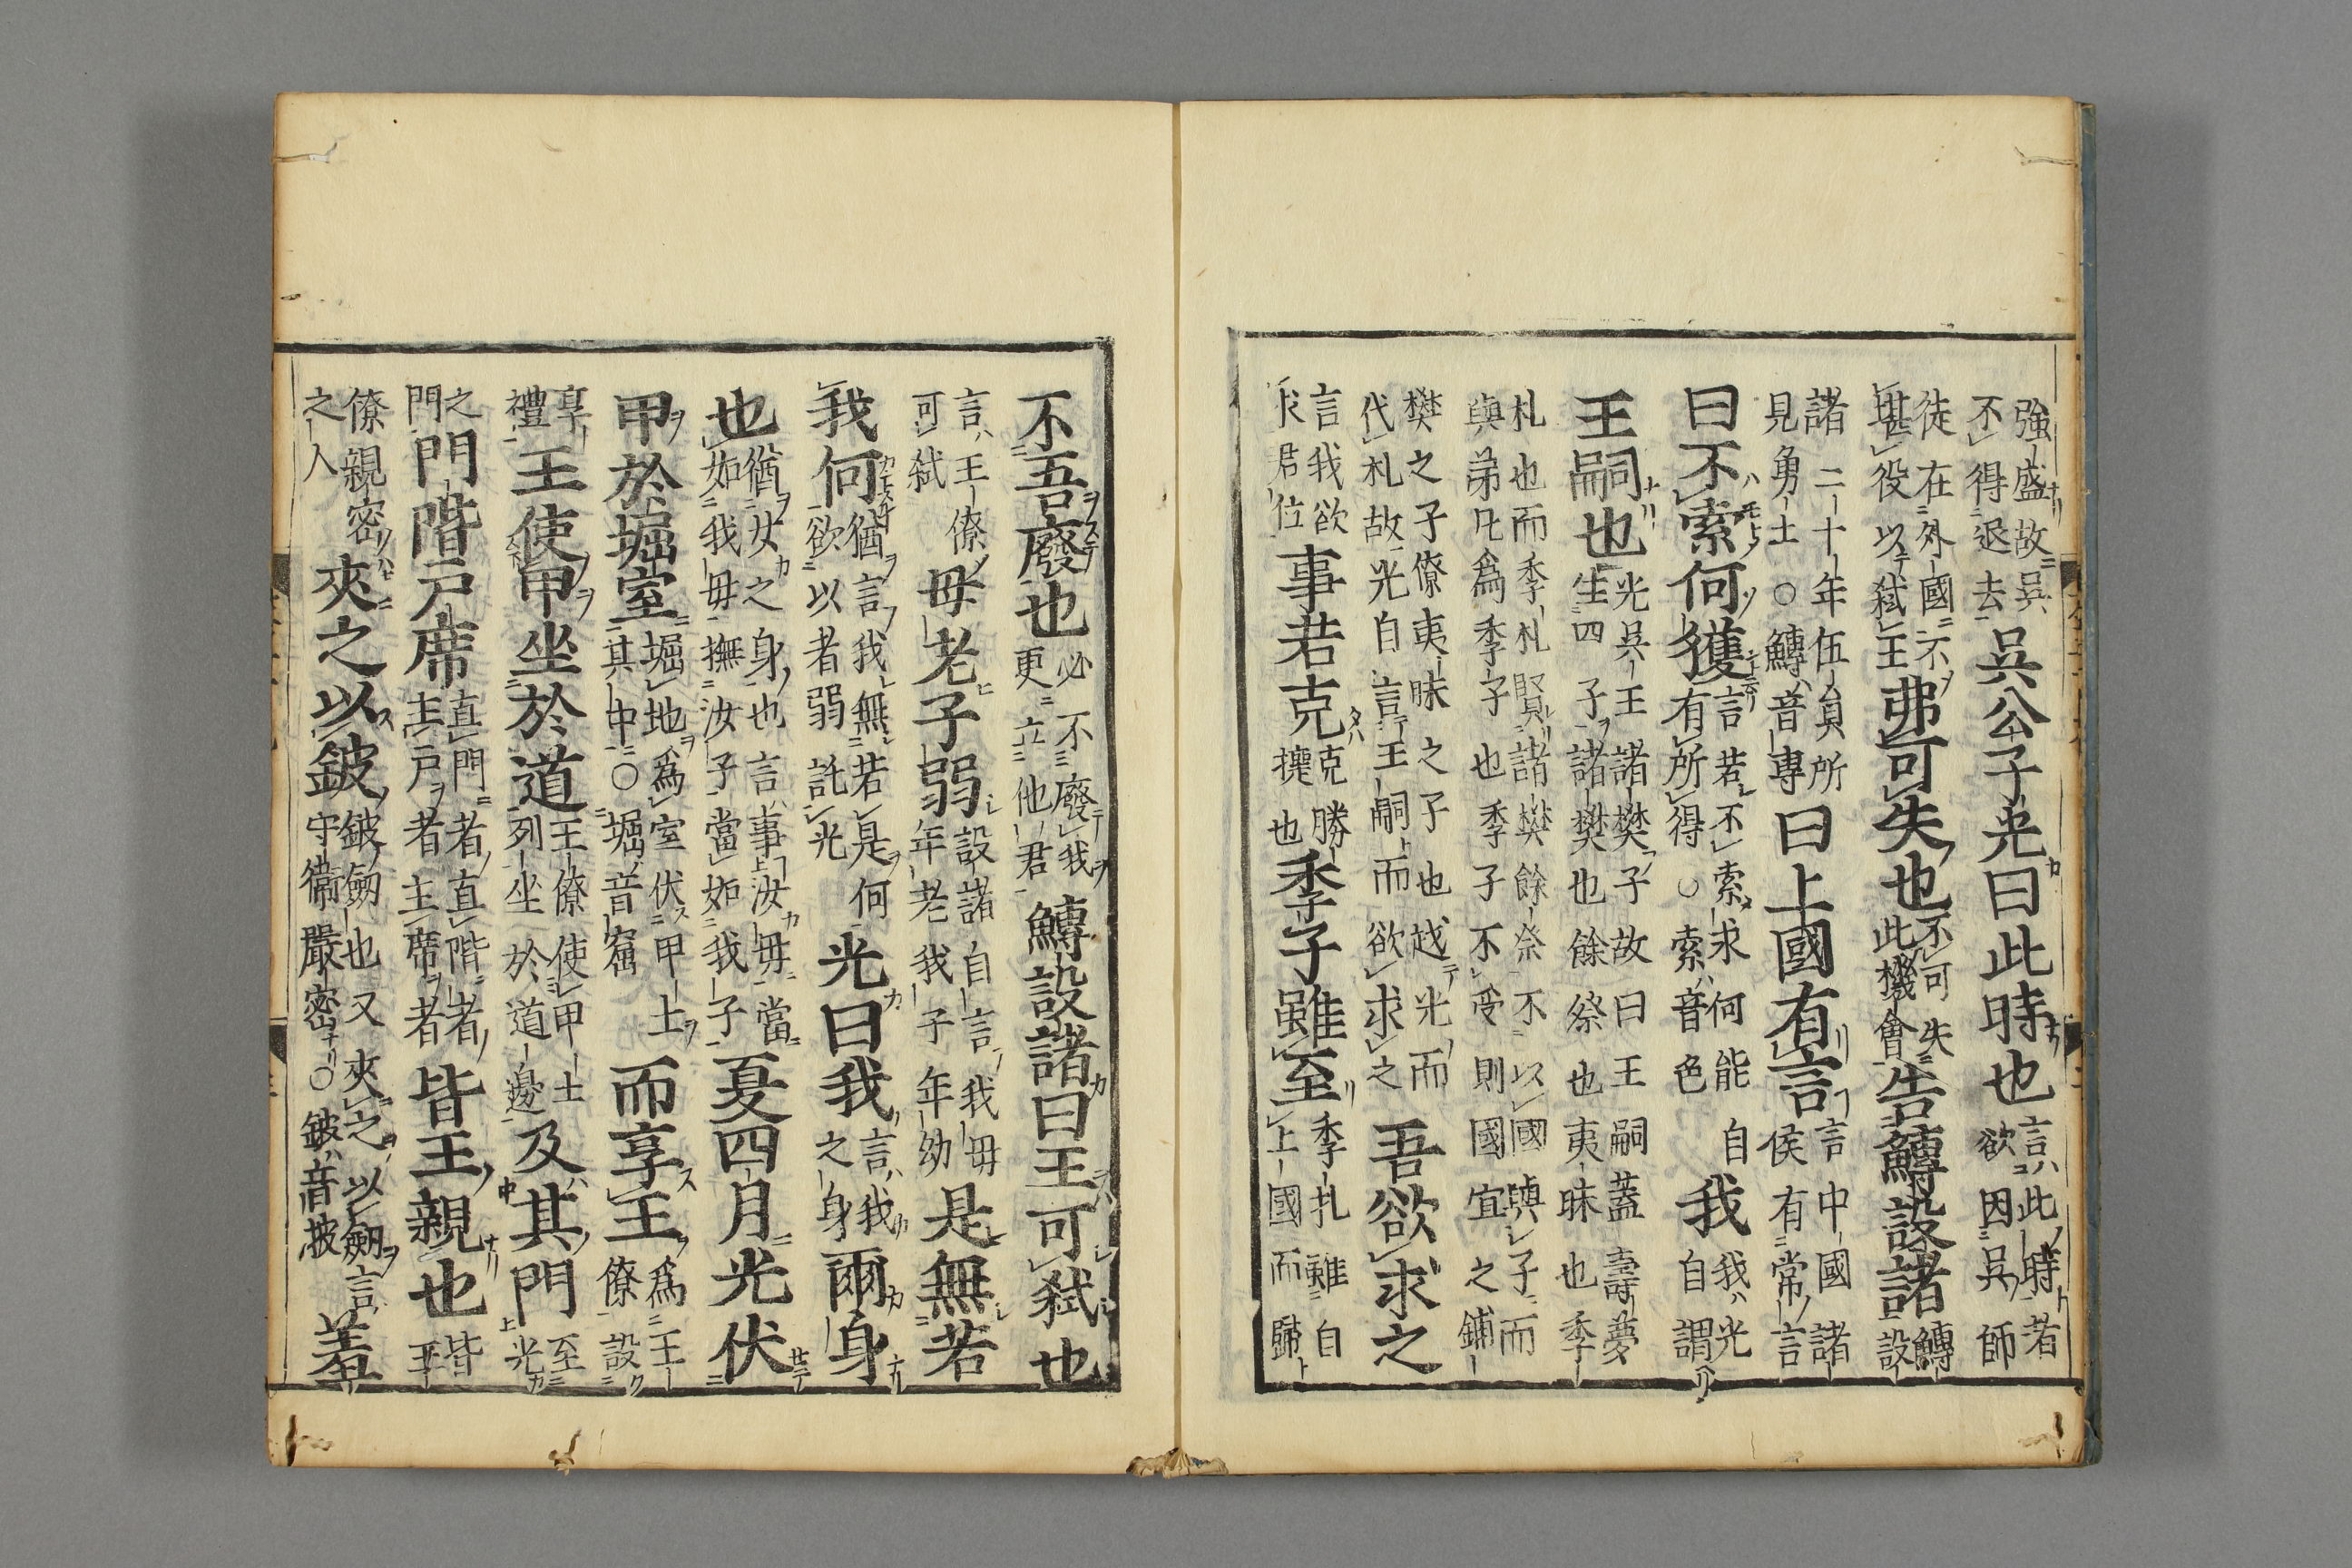 強盛故呉不得退去吳公子光曰此時也言此時者欲因呉師
徒在外國不堪役以弑王弗可失也不可失此機會告鱄設諸鱄設
諸二十年伍員所見勇士○鱄音專曰上國有言言中國諸侯有常言
曰不索何獲言若不索求何能自有所得○索音色我我光自謂
王嗣也光呉王諸樊子故曰王嗣蓋壽夢生四子諸樊也餘祭也夷昧也季
札也而季札賢諸樊餘祭不以國與子而與弟凡爲季子也季子不受則國宜之餔
樊之子僚夷昧之子也越光而代札故光自言王嗣而欲求之吾欲求之
言我欲求君位事若克克勝㨗也季子雖至季札雖自上國而歸
不吾廢也必不廢我更立他君鱄設諸曰王可弑也
言王僚可弑母老子弱設諸自言我母年老我子年幼是無若
我何猶言我無若是何欲以者弱託光光曰我言我之身爾身
也猶女之身也言事汝母當如我母撫汝子當如我子夏四月光伏
甲於堀室堀地爲室伏甲士其中○堀音窟而享王爲王僚設
享禮王使甲坐於道王僚使甲士列坐於道邊及其門至光
之門門階戸席直門者直階者主戸者主席者皆王親也皆王
僚親密之人夾之以鈹鈹劔也又夾之以劔言守衛嚴密○鈹音披羞